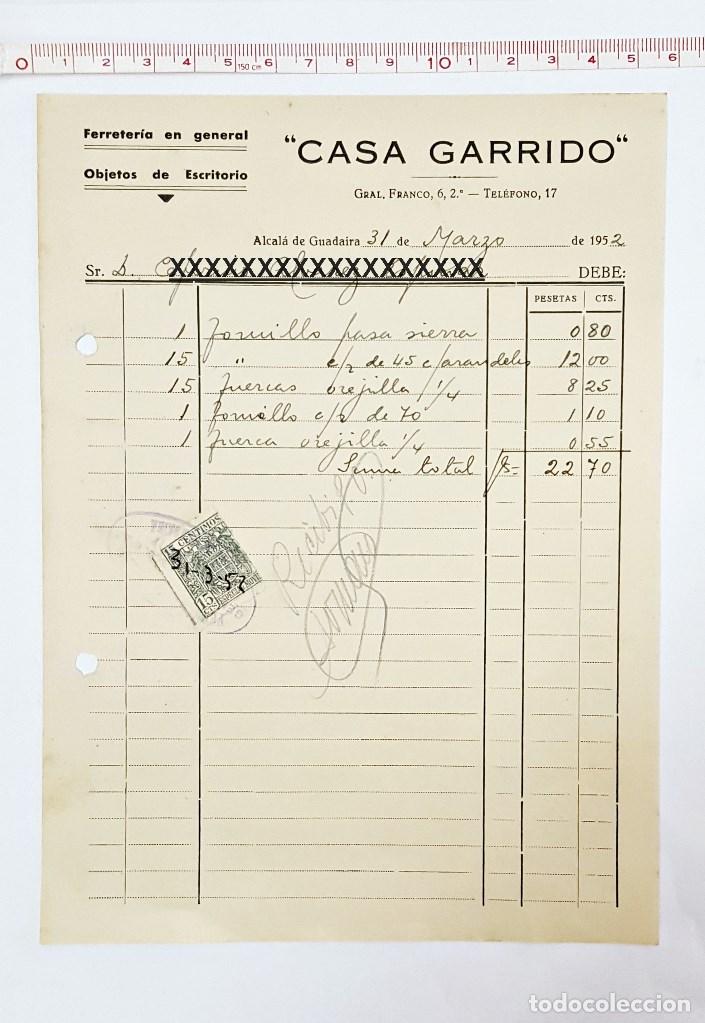 0 1 2 3 4 5 150 cm 6 7 8 9 10 1 2 3 4 5 6
Ferretería en general
Objetos de Escritorio
"CASA GARRIDO"
GRAL. FRANCO, 6, 2.º — TELÉFONO, 17
Alcalá de Guadaira 31 de Marzo de 1952
Sr. D. XXXXXXXXXXXXXXXXXXX DEBE:
PESETAS CTS.
1 Tornillo pasa sierra 0 80
15 " c/r de 45 c/arandelas 12 00
15 Tuercas orejilla 1/4 8 25
1 Tornillo c/r de 70 1 10
1 Tuerca orejilla 1/4 0 55
Suma total Ps= 22 70
15 CENTIMOS
31-3-52
15
Recibí
todocoleccion